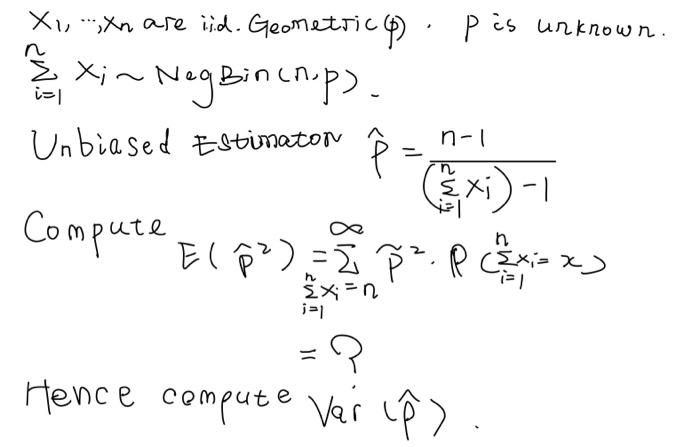 X₁, ⋯, Xn are i.i.d. Geometric(p). p is unknown.
\sum_{i=1}^{n} X_i ~ NegBin(n, p).
Unbiased Estimator \hat{p} = \frac{n-1}{(\sum_{i=1}^{n} X_i) - 1}
Compute
E(\hat{p}^2) = \sum_{\sum_{i=1}^{n} X_i = n}^{∞} \tilde{p}^2 · P(\sum_{i=1}^{n} X_i = x)
= ?
Hence compute Var(\hat{p}).